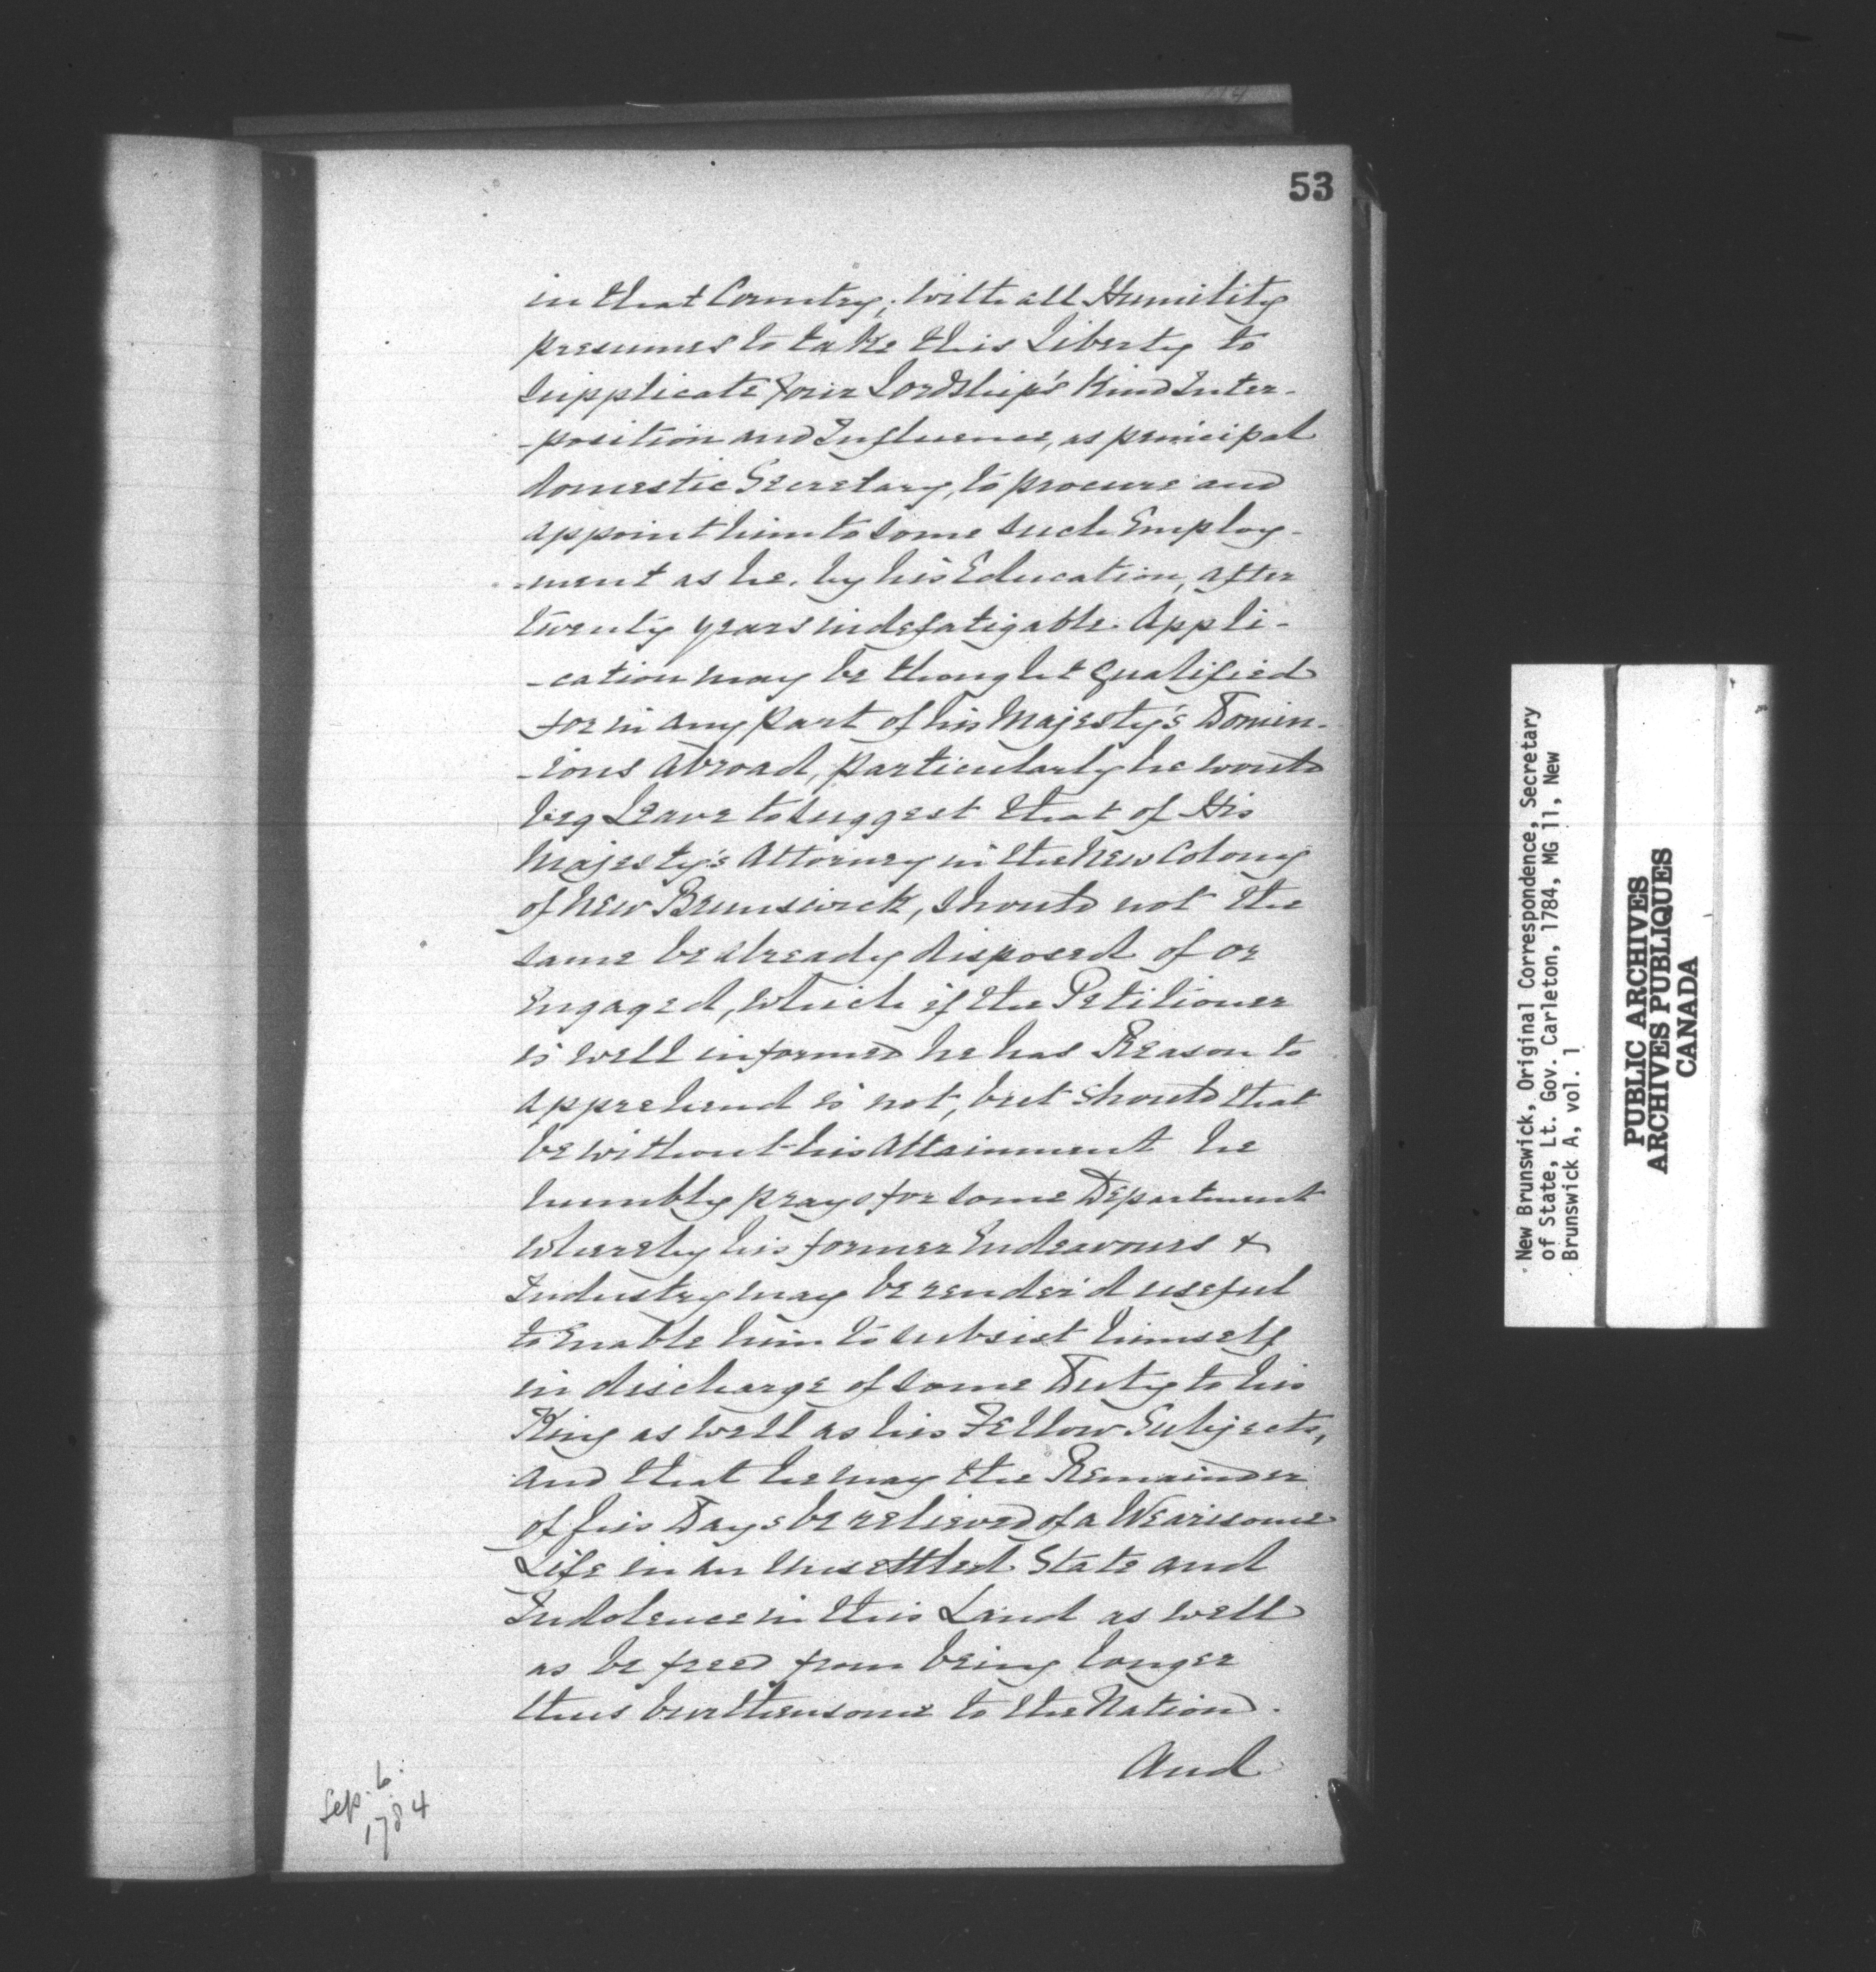 53
in that Country; with all Humility
presumes to take this Liberty to
Supplicate Your Lordship's Kind Inter-
-position and Influence, as principal
domestic Secretary, to procure and
appoint him to some such Employ-
-ment as he, by his Education, after
twenty years indefatigable Appli-
-cation may be thought qualified
for in any part of his Majesty's Domin-
-ions abroad, particularly he would
beg Leave to suggest that of His
Majesty's Attorney in the new Colony
of New Brunswick, should not the
same be already disposed of or
Engaged, which if the Petitioner
is well informed he has Reason to
apprehend is not, but should that
be without his Attainment he
humbly prays for some Department
whereby his former Endeavours &
Industry may be render'd useful
to Enable him to subsist himself
in discharge of some Duty to his
King as well as his Fellow Subjects,
and that he may the Remainder
of his Days be relieved of a Wearisome
Life in an unsettled State and
Indolence in this Land as well
as be freed from being longer
thus burthensome to the Nation.
And
Sep. 6.
1784
New Brunswick, Original Correspondence, Secretary
of State, Lt. Gov. Carleton, 1784, MG 11, New
Brunswick A, vol. 1
PUBLIC ARCHIVES
ARCHIVES PUBLIQUES
CANADA